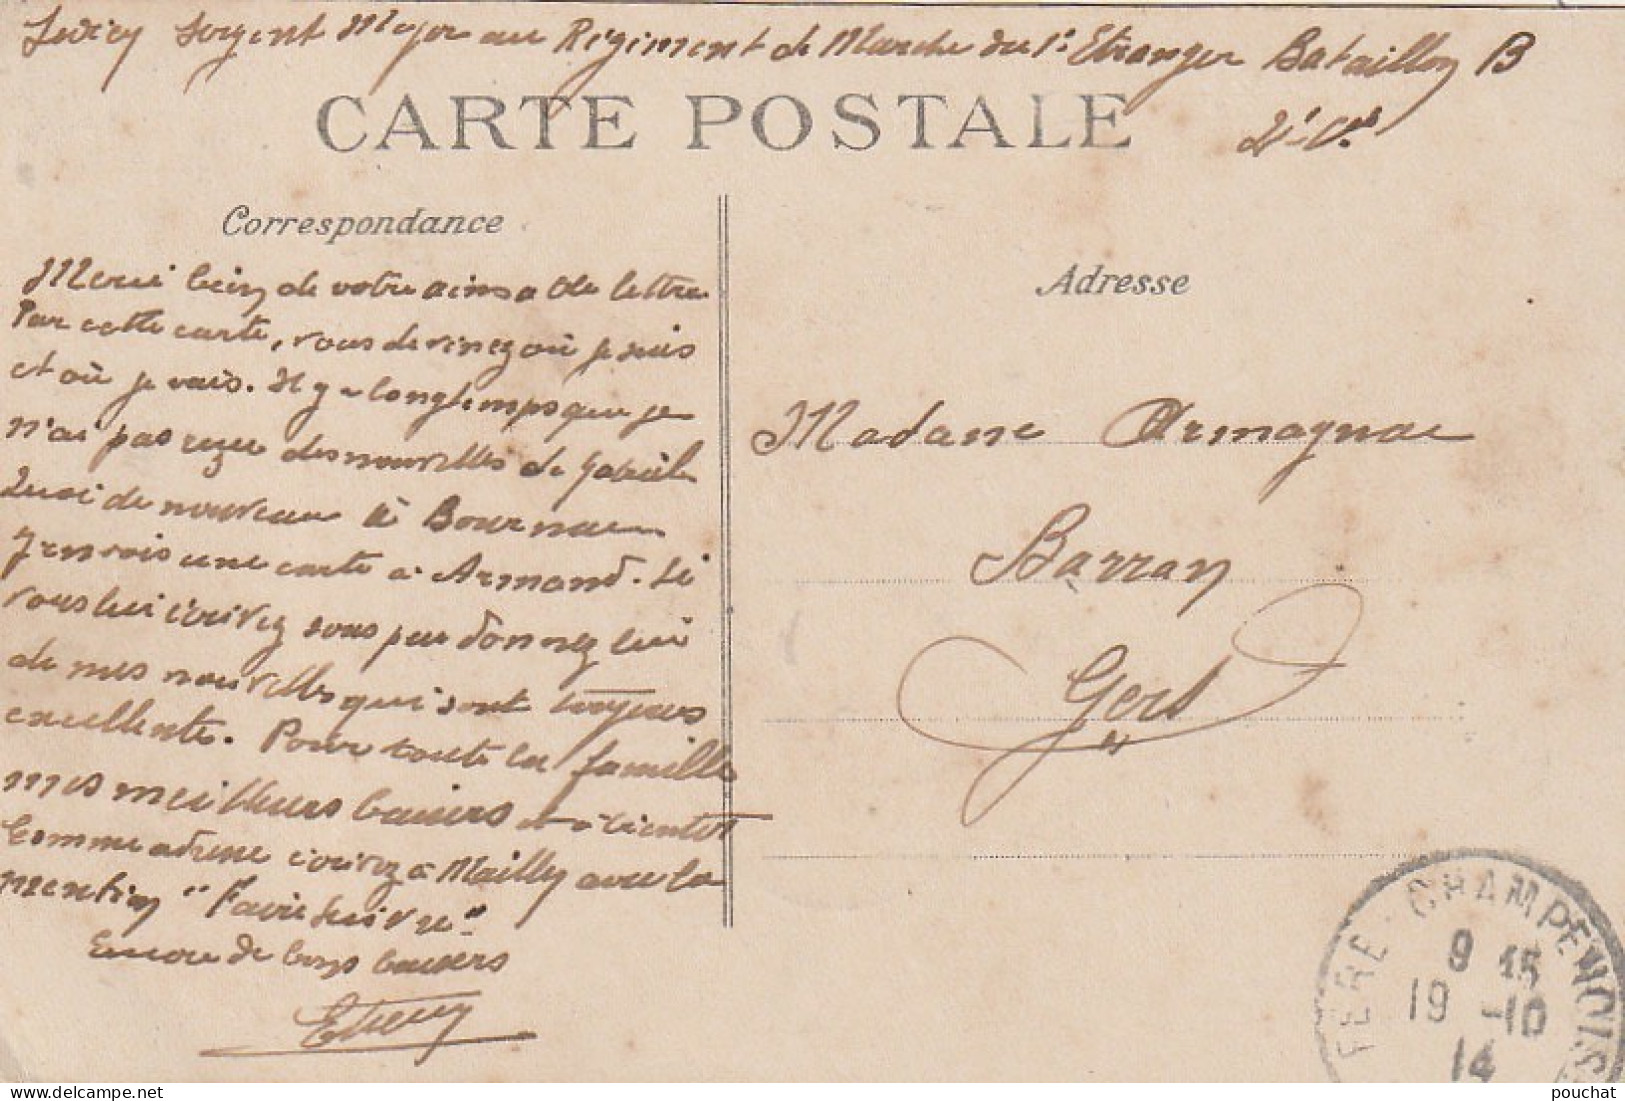 Sergent Major au Régiment de Marche du 1e Etranger Bataillon B
2e Cie
CARTE POSTALE
Correspondance
Merci bien de votre aimable lettre
Par cette carte, vous devinez où je suis
et où je vais. Il y a longtemps que je
n'ai pas reçu des nouvelles de
Quoi de nouveau à Bournac
J'envois une carte à Armand. Si
vous lui écrivez vous pou donnez lui
de mes nouvelles qui sont toujours
excellente. Pour toute la famille
mes meilleurs baisers et à bientot
Comme adresse écrivez à Mailly avec la
mention "Faire suivre"
Encore de bons baisers
Adresse
Madame Armagnac
Barran
Gers
FÈRE-CHAMPENOISE
9 15
19 -10
14
pouchat